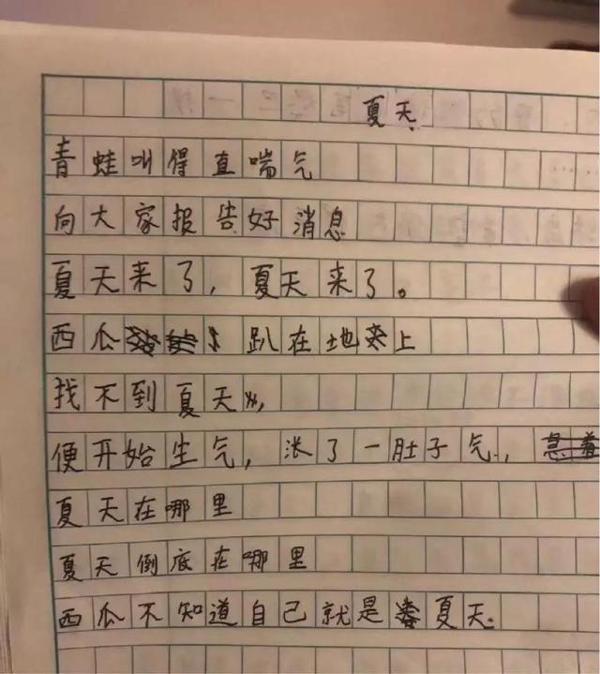 夏天
青蛙叫得直喘气
向大家报告好消息
夏天来了，夏天来了。
西瓜趴在地上
找不到夏天，
便开始生气，涨了一肚子气，
夏天在哪里
夏天倒底在哪里
西瓜不知道自己就是夏天.